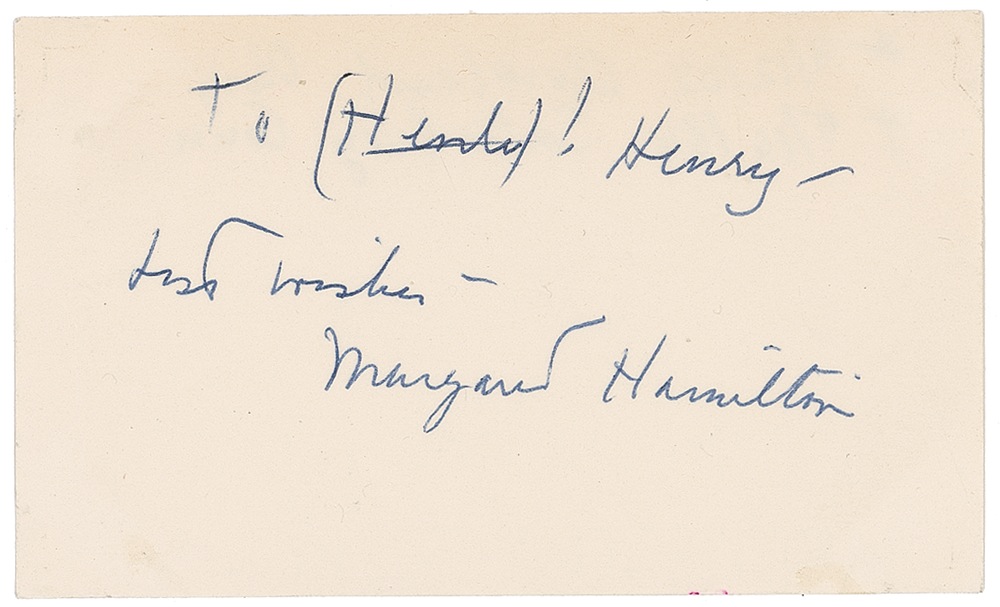 To (Hendy)! Henry –
best wishes –
Margaret Hamilton